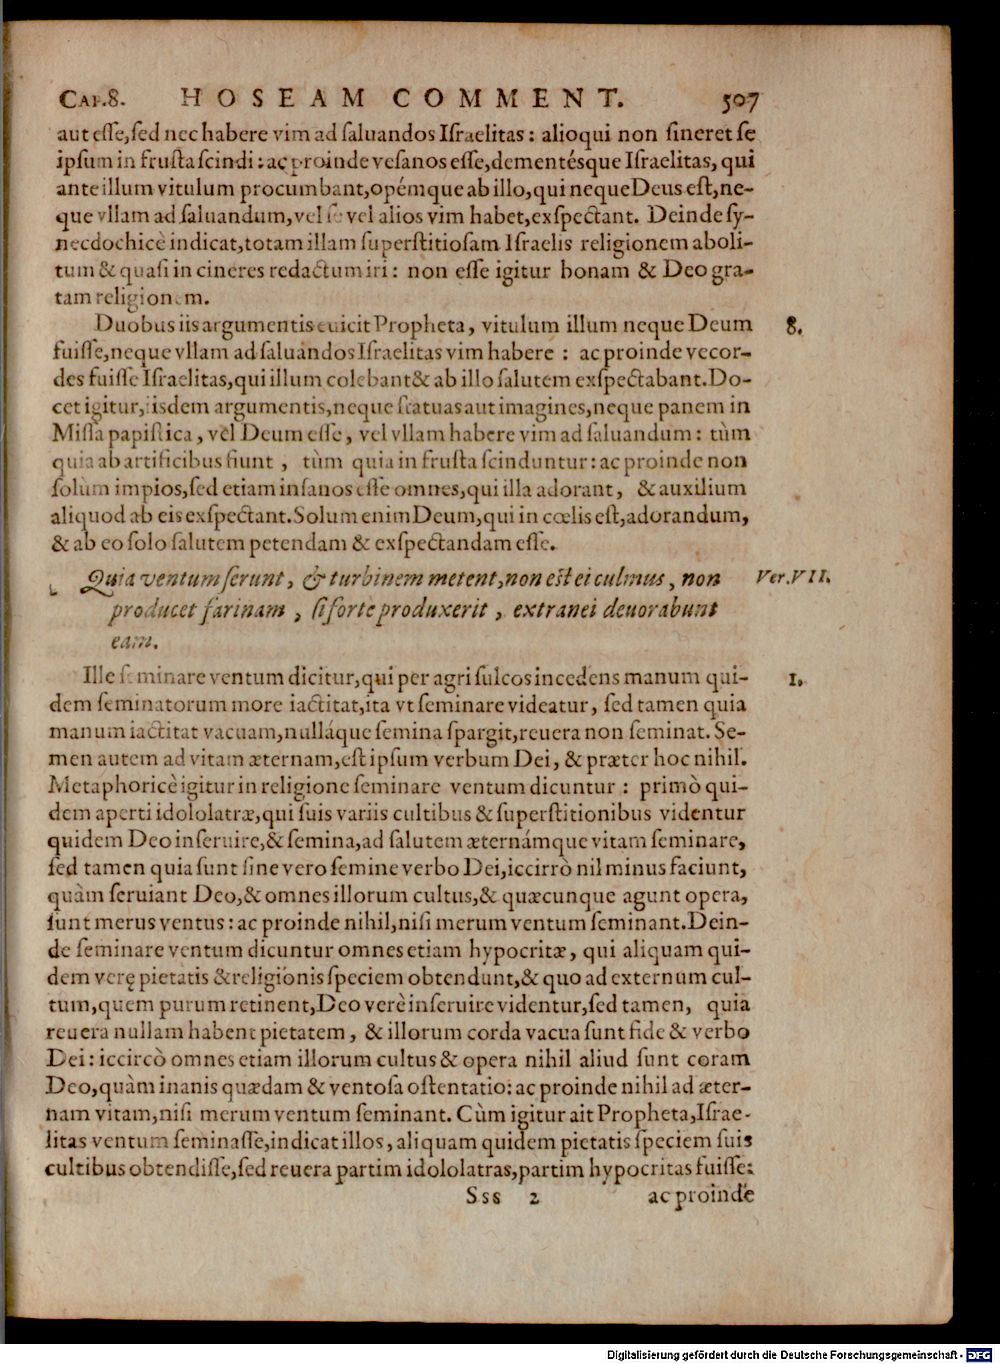 CAP.8. HOSEAM COMMENT. 507
aut eſſe, ſed nec habere vim ad ſaluandos Iſraelitas: alioqui non ſineret ſe
ipſum in fruſta ſcindi: ac proinde veſanos eſſe, dementésque Iſraelitas, qui
ante illum vitulum procumbant, opémque ab illo, qui neque Deus eſt, ne-
que vllam ad ſaluandum, vel ſe vel alios vim habet, exſpectant. Deinde ſy-
necdochicè indicat, totam illam ſuperſtitioſam Iſraelis religionem aboli-
tum & quaſi in cineres redactum iri: non eſſe igitur bonam & Deo gra-
tam religionem.
Duobus iis argumentis euicit Propheta, vitulum illum neque Deum 8.
fuiſſe, neque vllam ad ſaluandos Iſraelitas vim habere: ac proinde vecor-
des fuiſſe Iſraelitas, qui illum colebant & ab illo ſalutem exſpectabant. Do-
cet igitur, iisdem argumentis, neque ſtatuas aut imagines, neque panem in
Miſſa papiſtica, vel Deum eſſe, vel vllam habere vim ad ſaluandum: tùm
quia ab artificibus fiunt, tùm quia in fruſta ſcinduntur: ac proinde non
ſolùm impios, ſed etiam inſanos eſſe omnes, qui illa adorant, & auxilium
aliquod ab eis exſpectant. Solum enim Deum, qui in cœlis eſt, adorandum,
& ab eo ſolo ſalutem petendam & exſpectandam eſſe.
Quia ventum ſerunt, & turbinem metent, non eſt ei culmus, non Ver. VII.
producet farinam, ſi forte produxerit, extranei deuorabunt
eam.
Ille ſeminare ventum dicitur, qui per agri ſulcos incedens manum qui- 1.
dem ſeminatorum more iactitat, ita vt ſeminare videatur, ſed tamen quia
manum iactitat vacuam, nulláque ſemina ſpargit, reuera non ſeminat. Se-
men autem ad vitam æternam, eſt ipſum verbum Dei, & præter hoc nihil.
Metaphoricè igitur in religione ſeminare ventum dicuntur: primò qui-
dem aperti idololatræ, qui ſuis variis cultibus & ſuperſtitionibus videntur
quidem Deo inſeruire, & ſemina, ad ſalutem æternámque vitam ſeminare,
ſed tamen quia ſunt ſine vero ſemine verbo Dei, iccirrò nil minus faciunt,
quàm ſeruiant Deo, & omnes illorum cultus, & quæcunque agunt opera,
ſunt merus ventus: ac proinde nihil, niſi merum ventum ſeminant. Dein-
de ſeminare ventum dicuntur omnes etiam hypocritæ, qui aliquam qui-
dem verę pietatis & religionis ſpeciem obtendunt, & quo ad externum cul-
tum, quem purum retinent, Deo verè inſeruire videntur, ſed tamen, quia
reuera nullam habent pietatem, & illorum corda vacua ſunt fide & verbo
Dei: iccircò omnes etiam illorum cultus & opera nihil aliud ſunt coram
Deo, quàm inanis quædam & ventoſa oſtentatio: ac proinde nihil ad æter-
nam vitam, niſi merum ventum ſeminant. Cùm igitur ait Propheta, Iſrae-
litas ventum ſeminaſſe, indicat illos, aliquam quidem pietatis ſpeciem ſuis
cultibus obtendiſſe, ſed reuera partim idololatras, partim hypocritas fuiſſe:
Sss 2 ac proinde
Digitalisierung gefördert durch die Deutsche Forschungsgemeinschaft - DFG